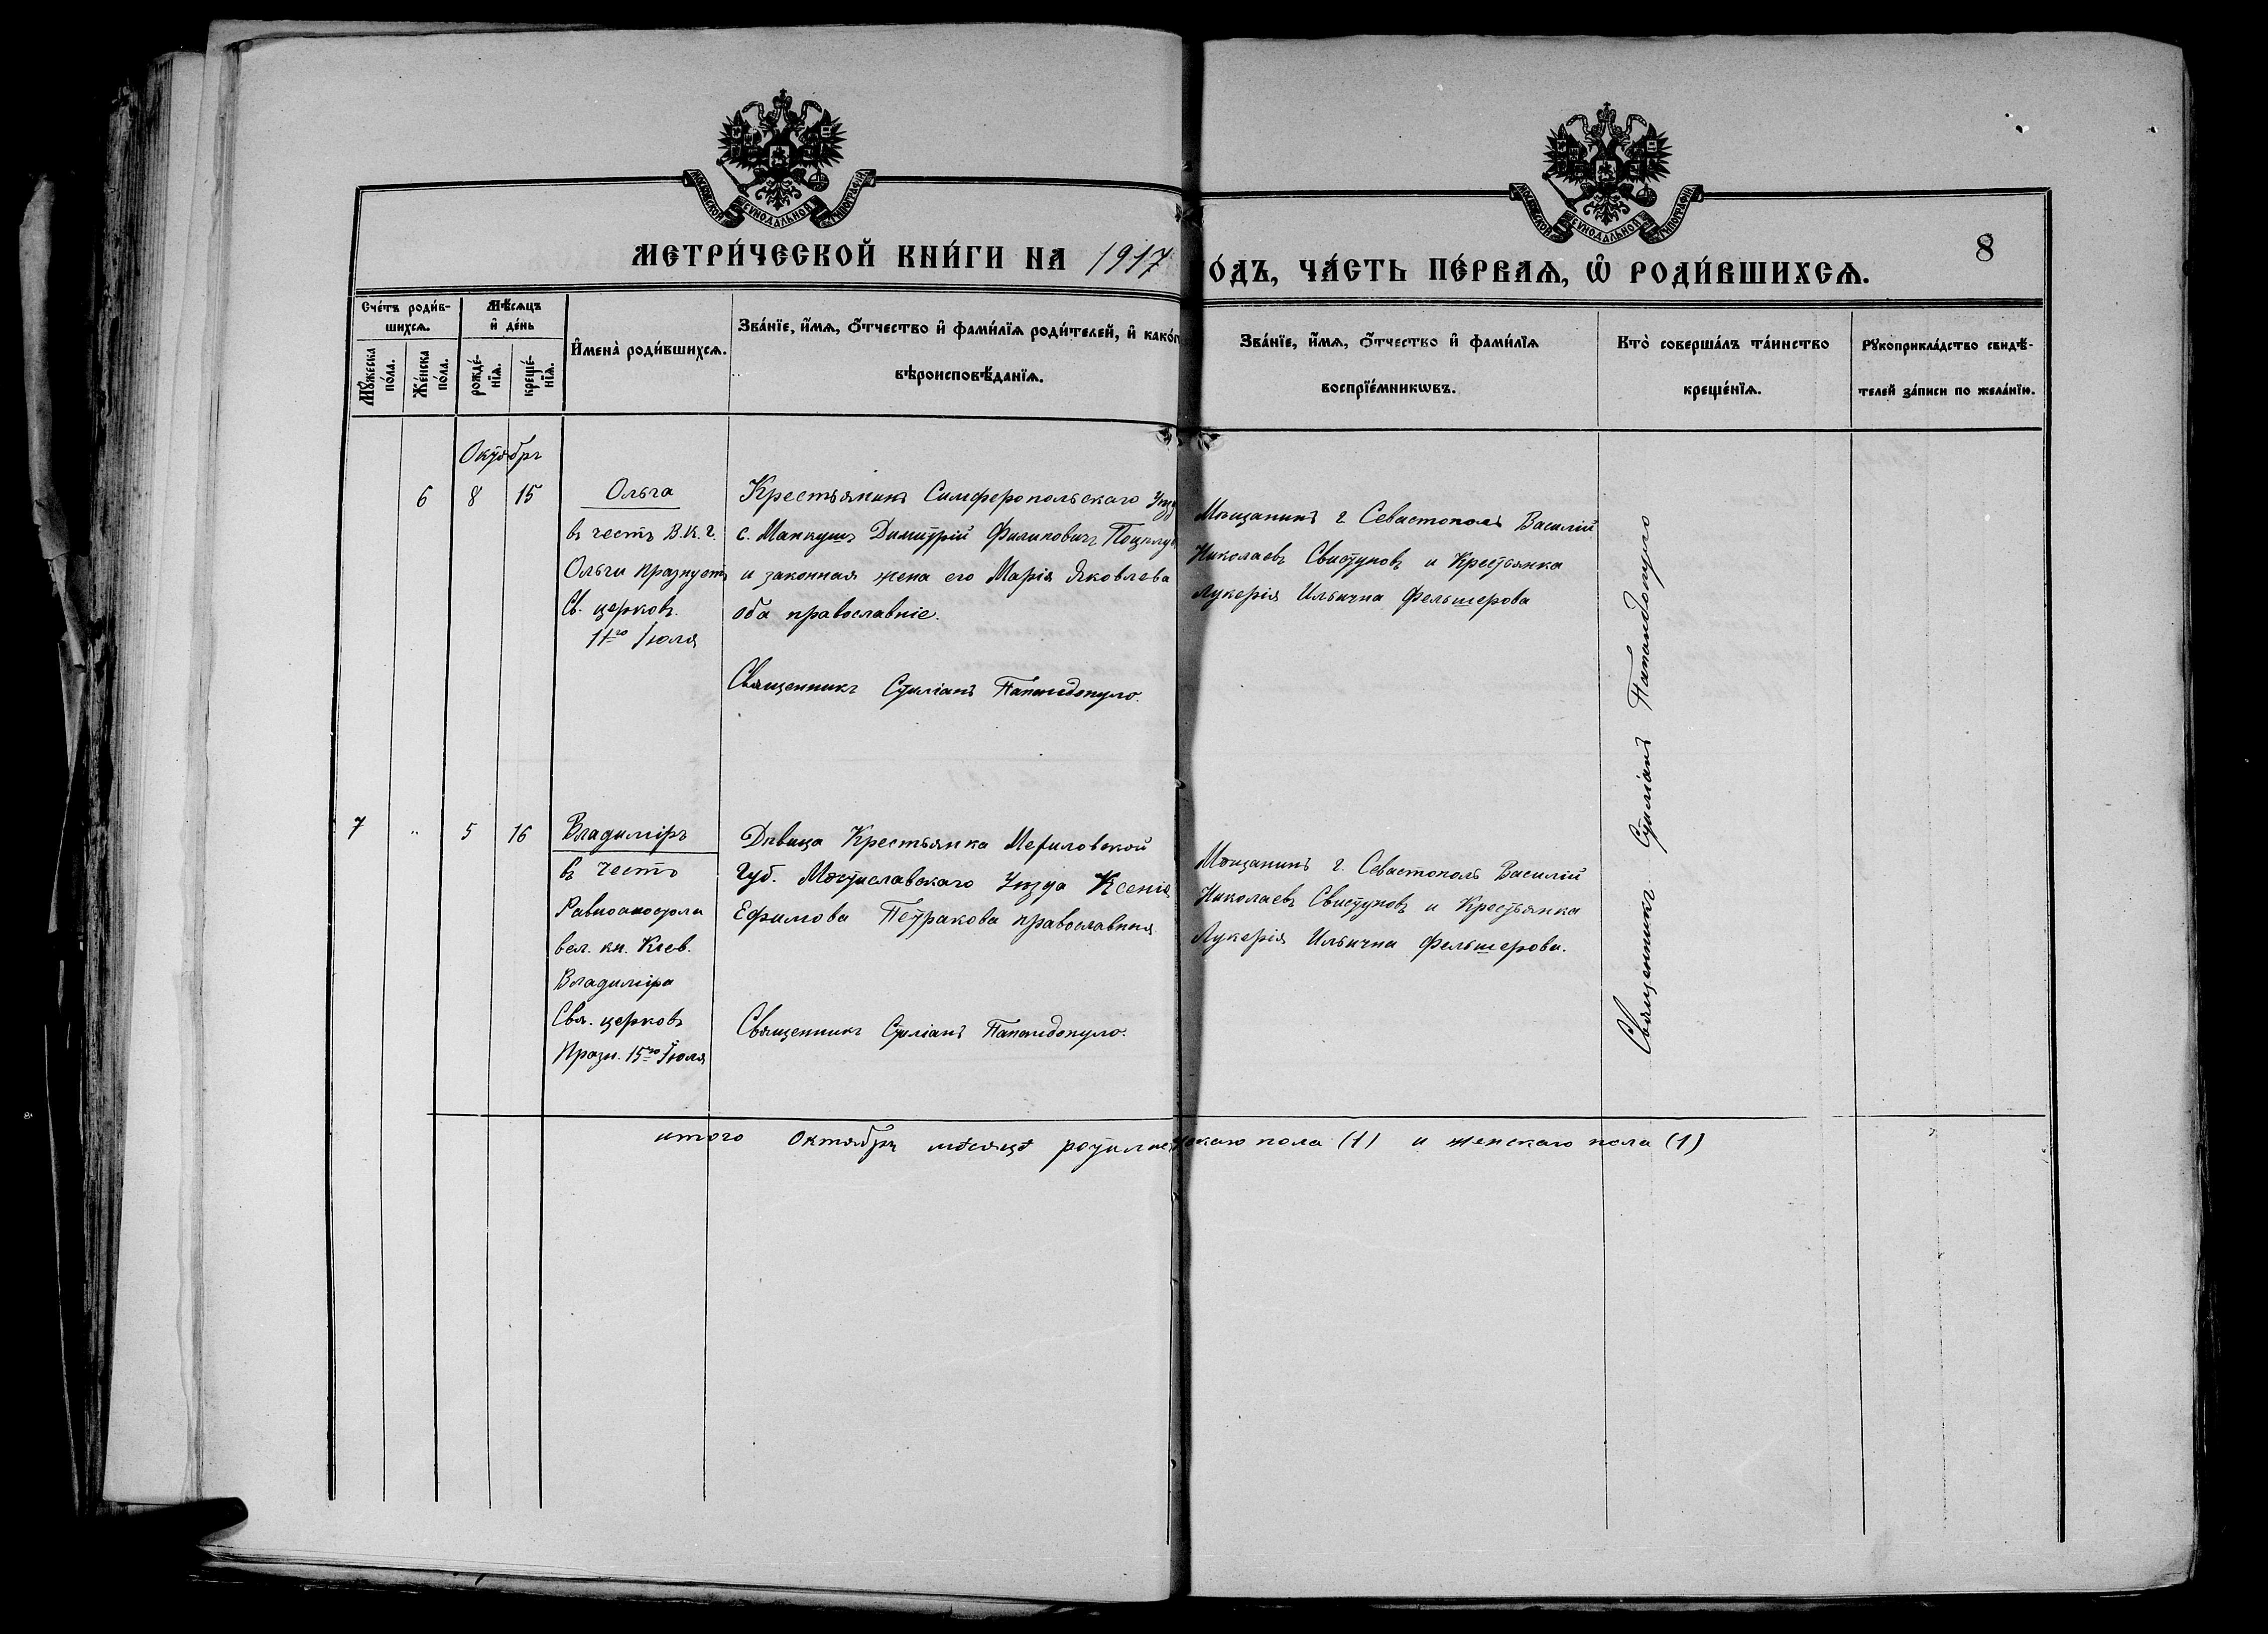 МОСКОВСКОЙ СУНОДАЛЬНОЙ ТИПОГРАФІИ
МОСКОВСКОЙ СУНОДАЛЬНОЙ ТИПОГРАФІИ
МЕТРИ́ЧЕСКОЙ КНИ́ГИ НА 1917
О́ДЪ, ЧА́СТЬ ПЕ́РВАѦ, Ѡ РОДИ́ВШИХСѦ.
8
Сче́тъ роди́в-
шихсѧ.
Мꙋ́жеска
по́ла.
Же́нска
по́ла.
Мѣ́сѧцъ
и҆ де́нь
рожде́-
нїѧ.
креще́-
нїѧ.
И҆мена̀ роди́вшихсѧ.
Зва́нїе, и҆́мѧ, ѻ҆́тчество и҆ фами́лїѧ роди́телей, и҆ како́г
вѣроисповѣ́данїѧ.
Зва́нїе, и҆́мѧ, ѻ҆́тчество и҆ фами́лїѧ
воспрїе́мникѡвъ.
Кто̀ соверша́лъ та́инство
креще́нїѧ.
Рꙋкоприкла́дство свидѣ́-
телей за́писи по жела́нїю.
Октябрь
6 8 15
Ольга
въ честь В.К.г.
Ольги празнуетъ
Св. церковъ.
11го Іюля
Крестьянинъ Симферопольскаго Уѣзд
с. Манкушъ Димитрій Филиповичъ
и законная жена его Марія Яковлева
оба православніе.
Священникъ Стиліанъ Папандопуло.
Мѣщанинъ г Севастополь Василій
Николаевъ Свистуновъ и Крестьянка
Лукерія Ильична Фельшерова
7 „ 5 16
Владиміръ
въ честь
Равноапостоли
вел. кн. Кіев.
Владиміра
Свя. церковъ
Празн. 15го Іюля
Дѣвица Крестьянка Могиловской
Губ. Мстиславскаго Уѣзда Ксенія
Ефимова Петракова православная
Священникъ Стиліанъ Папандопуло.
Мѣщанинъ г. Севастополь Василій
Николаевъ Свистуновъ и Крестьянка
Лукерія Ильична Фельшерова.
Священникъ Стиліанъ Папандопуло
итого Октябрь мѣсяцѣ скаго пола (1) и женскаго пола (1)